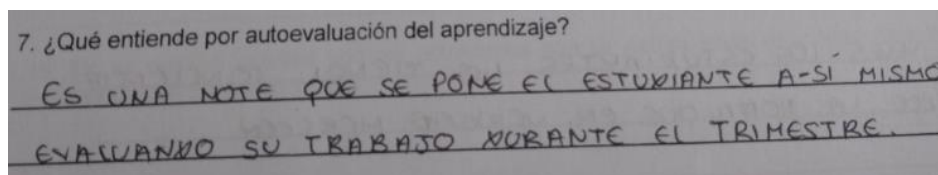 7. ¿Qué entiende por autoevaluación del aprendizaje?
ES UNA NOTE QUE SE PONE EL ESTUDIANTE A-SÍ MISMO
EVALUANDO SU TRABAJO DURANTE EL TRIMESTRE.